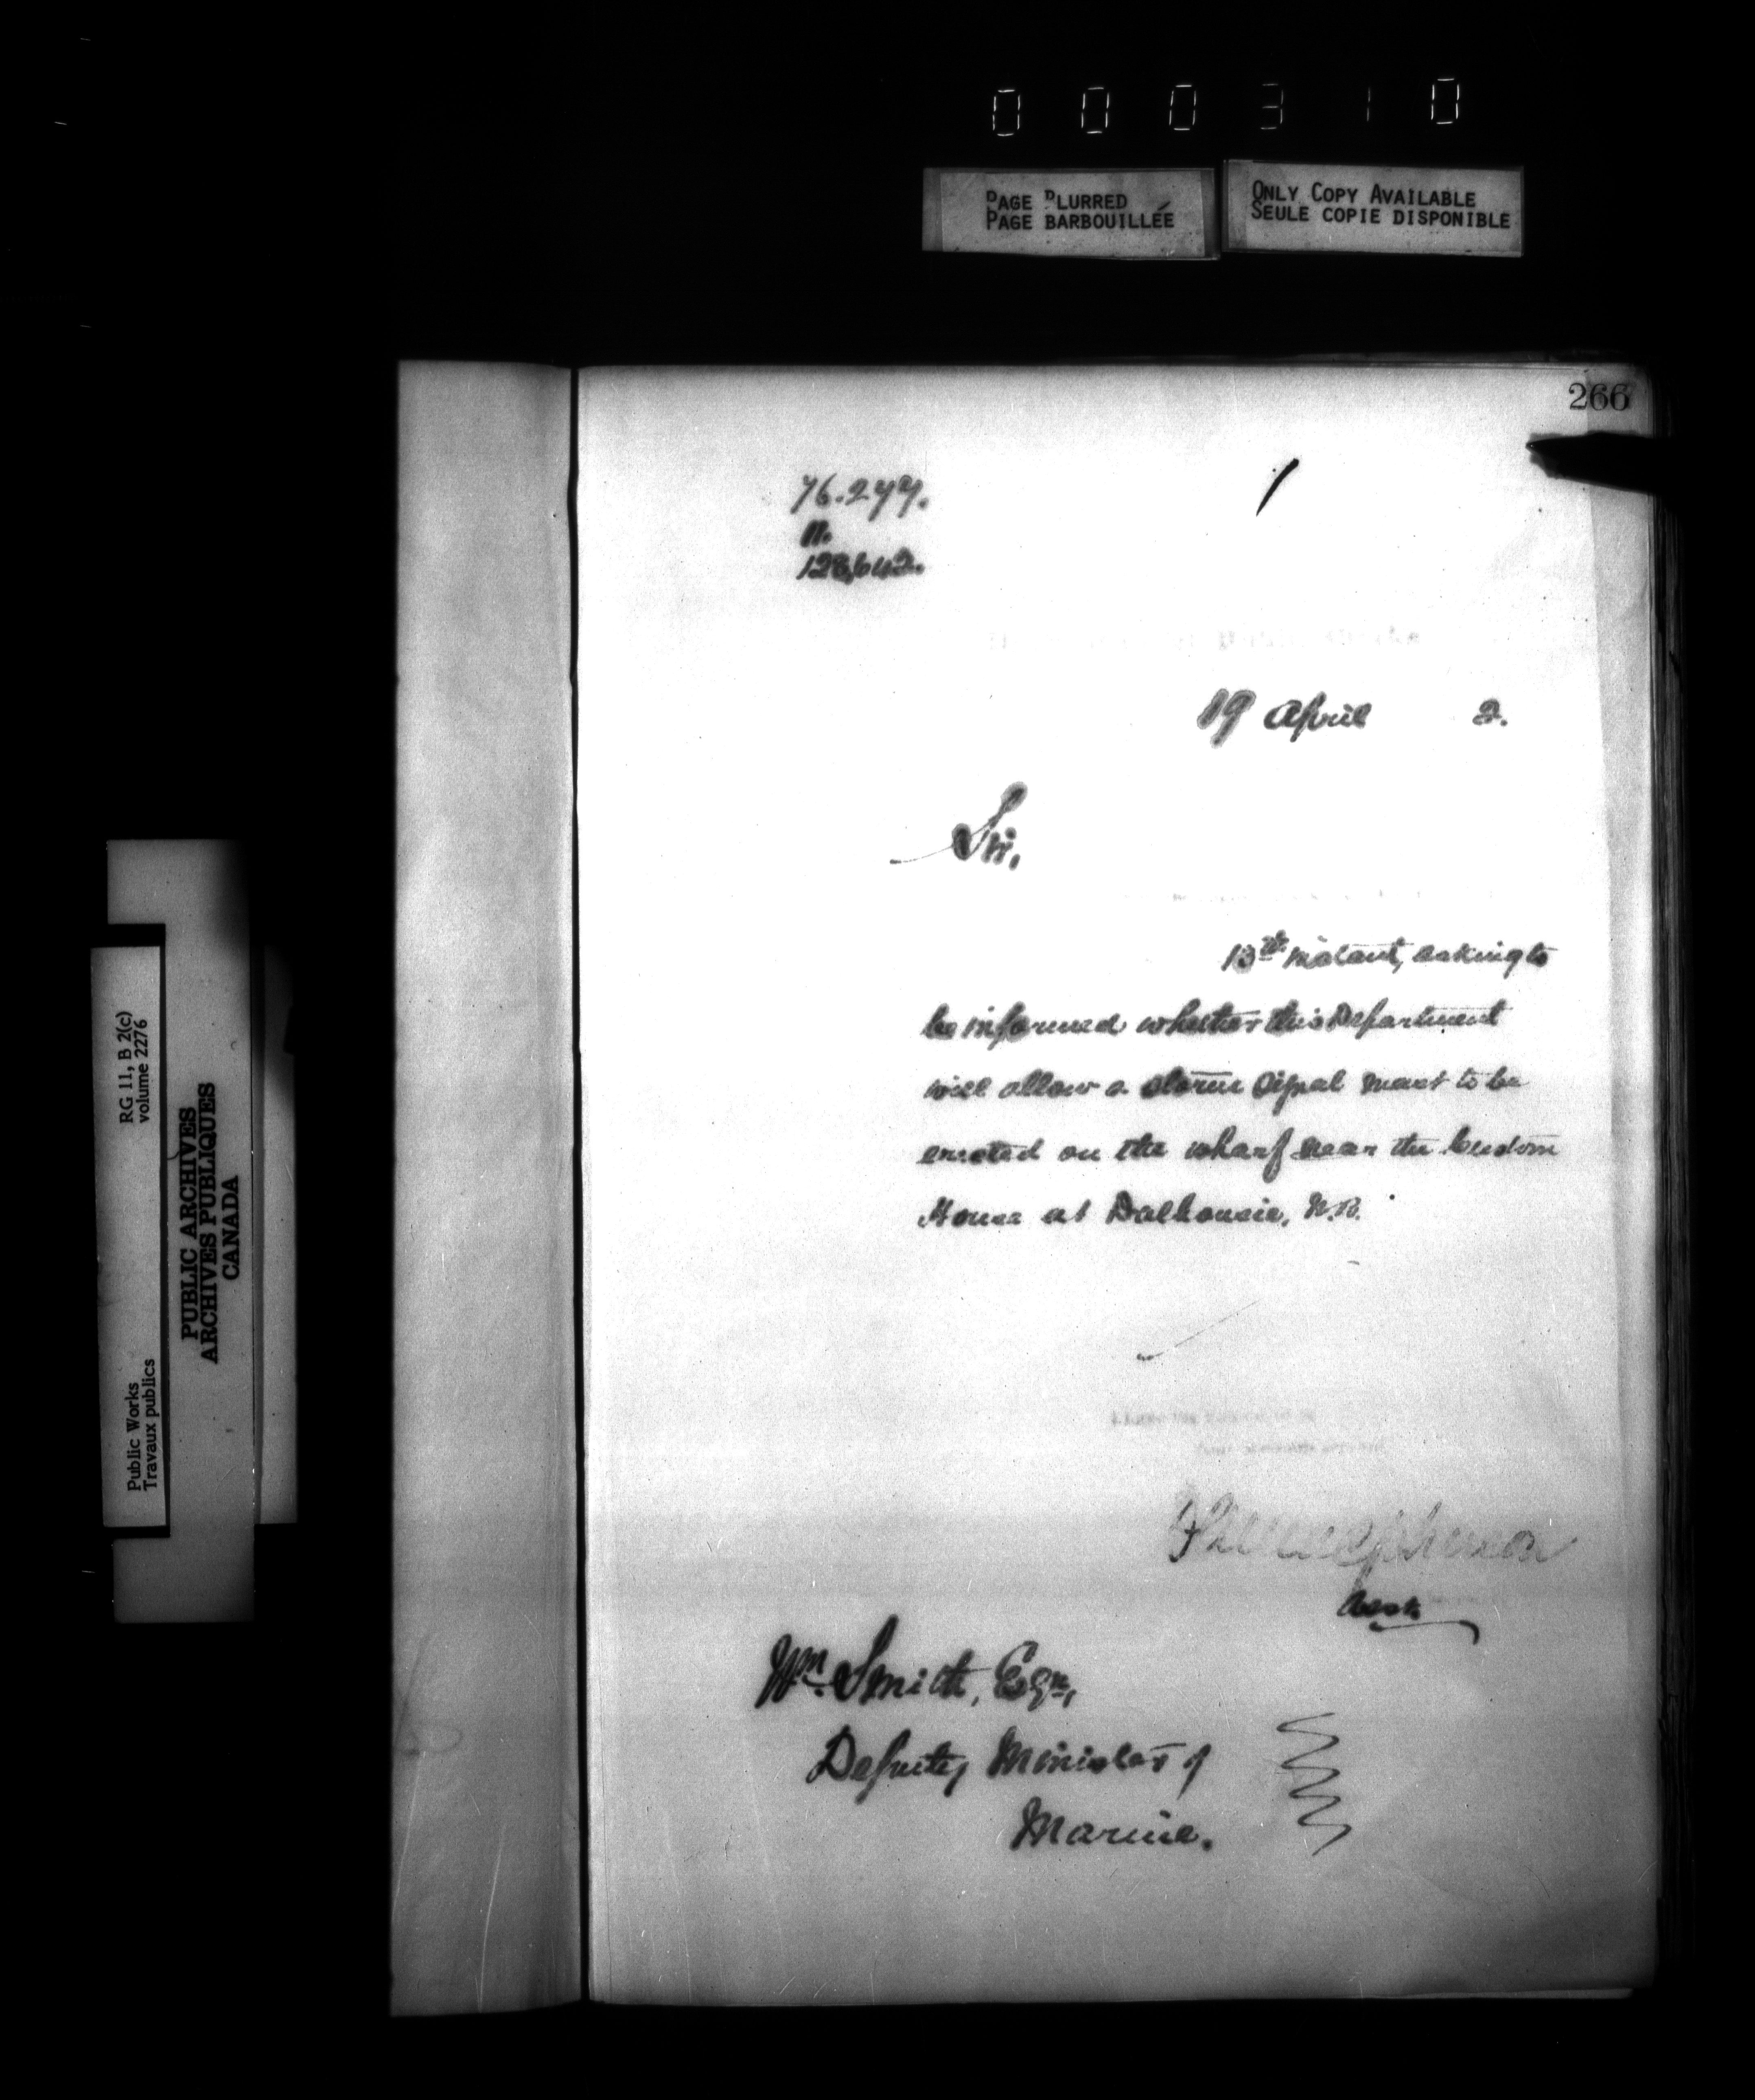 000310
PAGE BLURRED
PAGE BARBOUILLÉE
ONLY COPY AVAILABLE
SEULE COPIE DISPONIBLE
266
76.277.
11.
128,642.
19 April 2.
Sir,
13th instant, asking to
be informed whether this Department
will allow a storm signal mast to be
erected on the wharf near the Custom
House at Dalhousie, N.B.
Asst.
Wm. Smith, Esqre,
Deputy Minister of
Marine.
RG 11, B 2(c)
volume 2276
Public Works
Travaux publics
PUBLIC ARCHIVES
ARCHIVES PUBLIQUES
CANADA